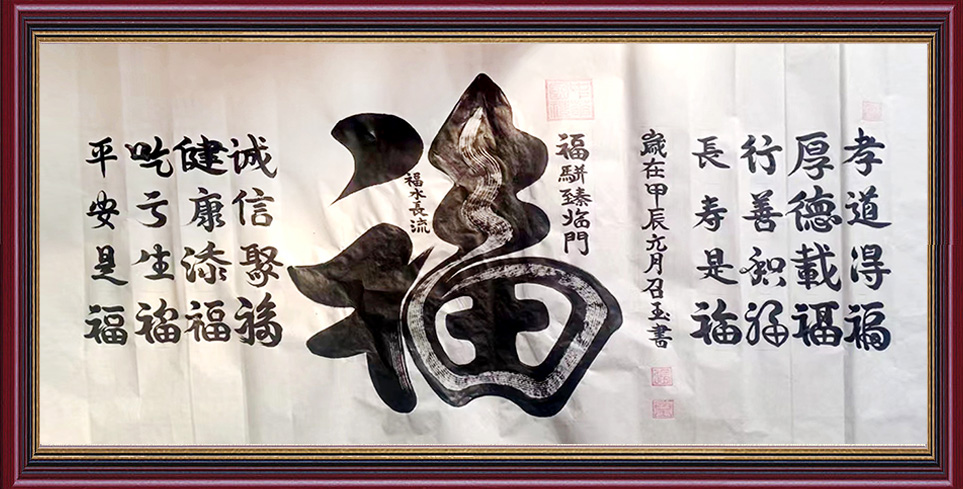 孝道得福
厚德載福
行善积福
長寿是福
歲在甲辰元月召玉書
福駢臻临門
福
福水長流
诚信聚福
健康添福
吃亏生福
平安是福